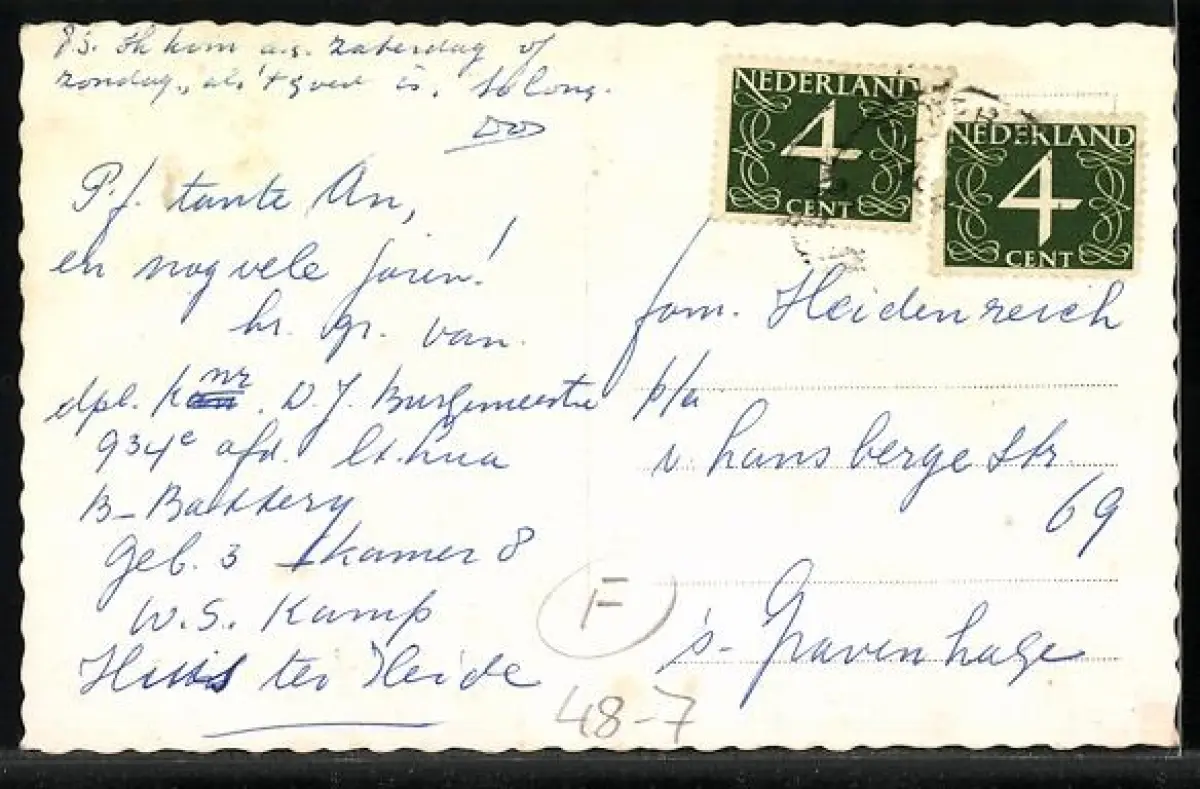 P.S. Ik kom a.s. zaterdag of
zondag, als 't goed is. Solong.
DO
P.f. tante An,
en nog vele jaren!
hr. gr. van.
dpl. Knr. D.J. Burgemeestre
934e afd. lt. lua
B-Battery
Geb. 3 kamer 8
W.S. Kamp
Huis ter Heide
NEDERLAND
4
CENT
NEDERLAND
4
CENT
fam. Heidenreich
p/a
v. hansbergestr.
69
s-Gravenhage
F
48-7